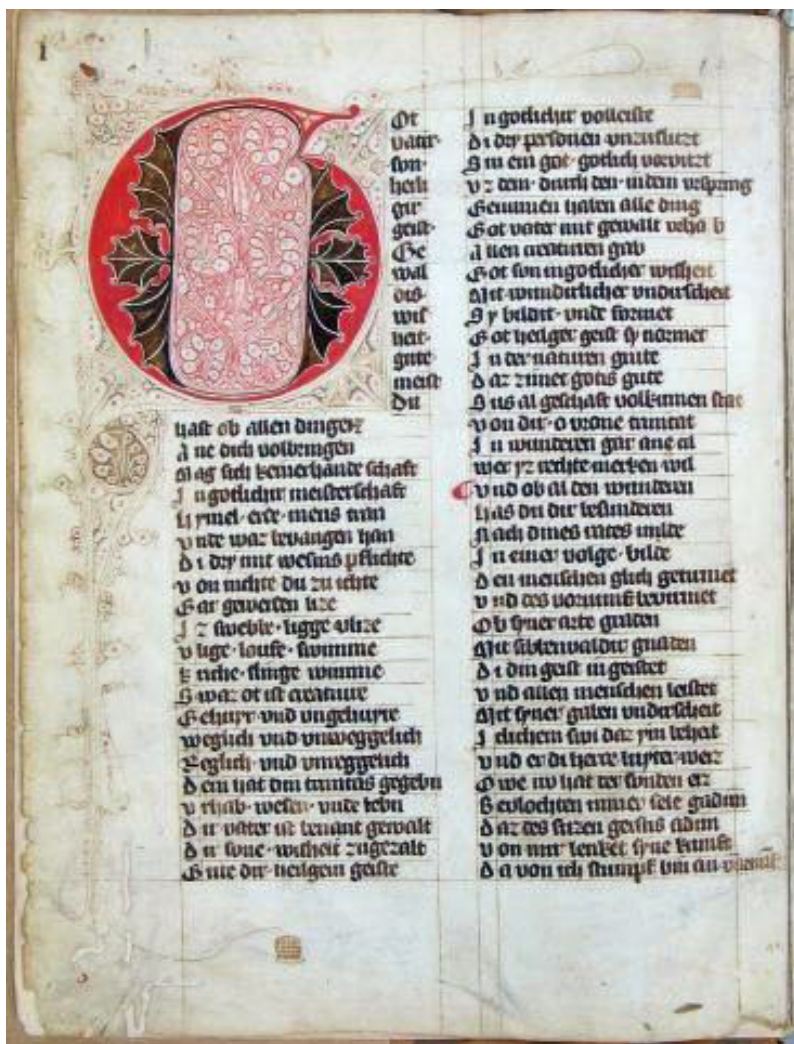 I
Got
vatir·
son·
heili
gir
geist·
Ge
wal
dis·
wis
heit·
gute
meist
Du
hast ob allen dingen
A ne dich volbringen
M ag sich keinerhande schaft
I n gotlichir meisterschaft
H ymel· erde· meris tran
v nde waz bevangen han
D i dry mit wesins pflichte
v on nichte du zu ichte
G ar gewerfen
I z swebe· ligge· vlize
v lige· loufe· swimme
k riche· slinge wimme
S waz ot ist creature
G ehuyr vnd vngehuyre
weglich vnd vnweggelich
R eglich vnd vnreggelich
D em hat din trinitas gegebn
v rhab· wesen· vnde lebn
D ir vater ist benant gewalt
D ir sone· wisheit zugezalt
G ute dir· heilgem geiste
I n gotlichir volleiste
D i dry personen vnzuslizt
S in ein got· gotlich vorvitzt
v z dem· durch den· in dem vrspring
G enumen haben alle ding
G ot vater mit gewalt vrhab
A llen creaturen gab
G ot son in gotlicher wisheit
M it wundirlicher vndirscheit
S y bildit· vnde formet
G ot heilger geist sy normet
I n der naturen gute
D az
S us al geschaft volkumen stat
v on dir· o vrone trinitat
I n wunderen gar ane zil
wer iz rechte merken wil
v nd ob al den wunderen
H as du dir besunderen
N ach dines rates milde
I n einer volge· bilde
D en menschen glich
v nd des vornunft
O b syner arte graden
M it sibenvaldir gnaden
D i din geist in geistet
v nd allen menschen leistet
M it syner gaben vndirscheit
I clichem
v nd er di herre
O we nv hat der sunden
B evlochten miner sele gadim
D az des suzen geistis adim
v on mir lenket syne kunft
D a von ich stumpf bin an